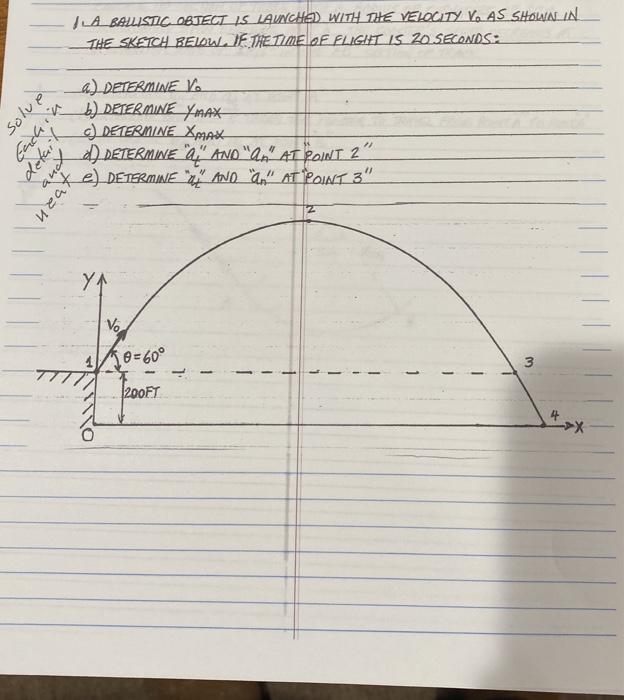 1. A BALLISTIC OBJECT IS LAUNCHED WITH THE VELOCITY V₀ AS SHOWN IN
THE SKETCH BELOW. IF THE TIME OF FLIGHT IS 20 SECONDS:
a) DETERMINE V₀
b) DETERMINE YMAX
c) DETERMINE XMAX
d) DETERMINE "at" AND "an" AT "POINT 2"
e) DETERMINE "at" AND "an" AT "POINT 3"
Solve
Each in
detail
and
neat
2
Y
V₀
1
θ=60°
3
200FT
4
O
X